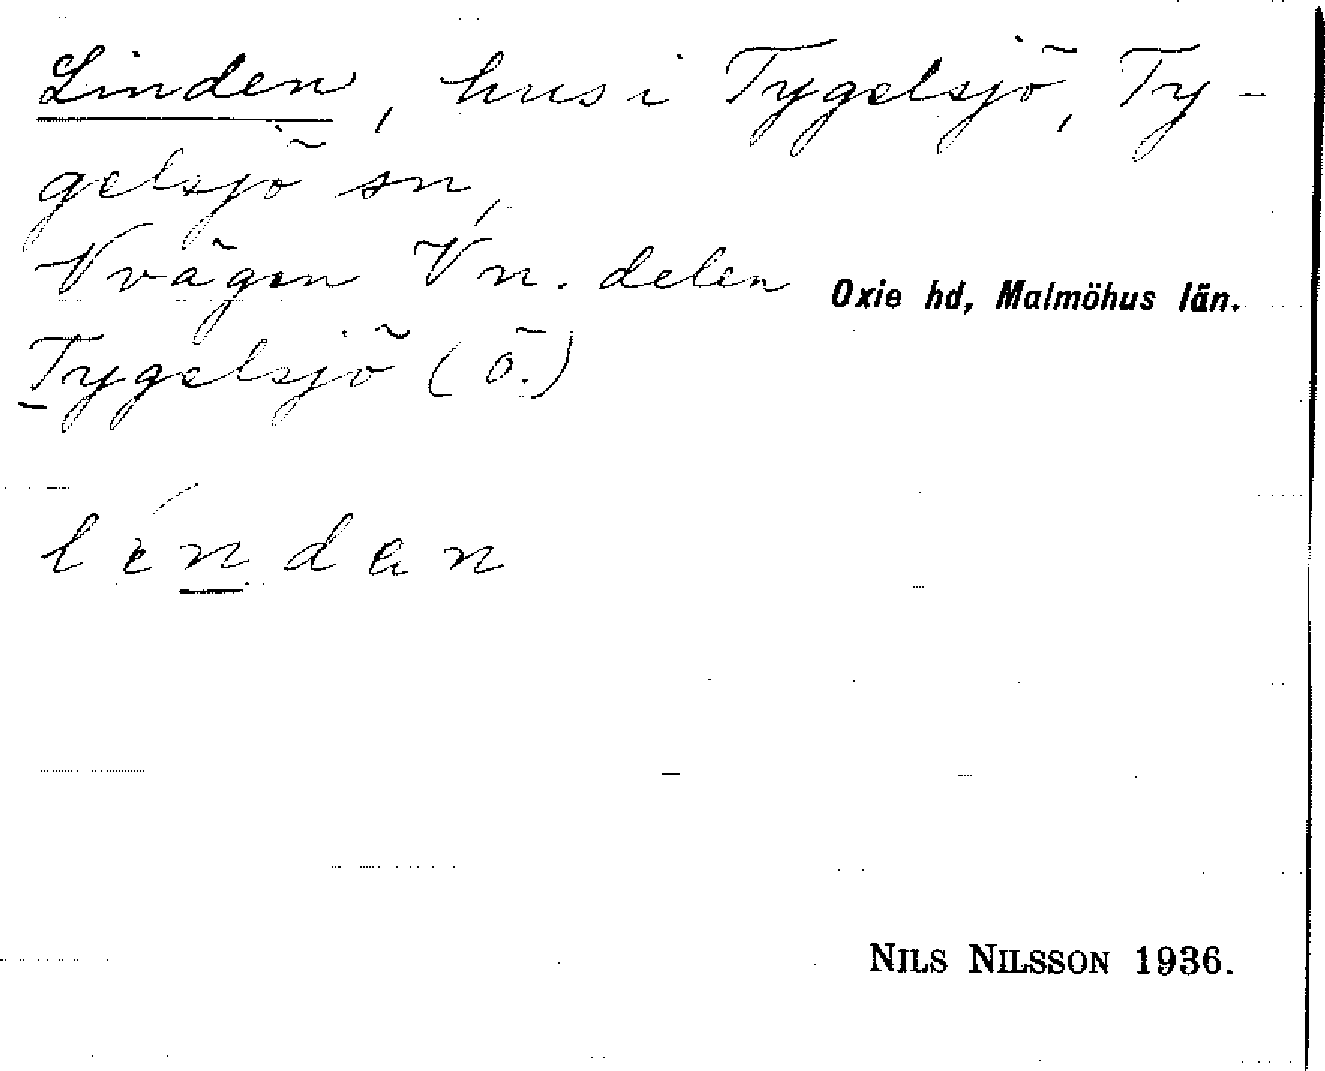 Linden, hus i Tygelsjö, Ty-
gelsjö sn,
V vägen Vn. delen
Oxie hd, Malmöhus län.
Tygelsjö (ö.)
léndan
NILS NILSSON 1936.